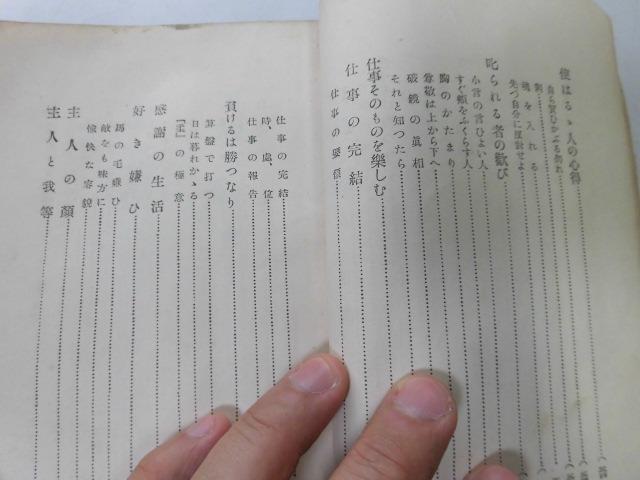 使はるゝ人の心得
自ら買ひかぶる勿れ
魂を入れる
先づ自分に注射せよ
叱られる者の歡び
小言の言ひよい人
すぐ頬をふくらす人
胸のかたまり
尊敬は上から下へ
破鏡の眞相
それと知つたら
仕事そのものを樂しむ
仕事の完結
仕事の要領
仕事の完結
時、處、位
仕事の報告
負けるは勝つなり
算盤で打つ
日は暮れかゝる
『主』の極意
感謝の生活
好き嫌ひ
馬の毛嫌ひ
敵をも味方に
愉快な容貌
主人の顏
主人と我等